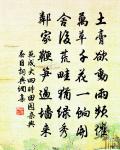 土膏欲動雨頻催
萬草千花一餉開
舍後荒畦猶綠秀
鄰家鞭筍過牆來
范成大四時田園雜興
春日詞兵澗集